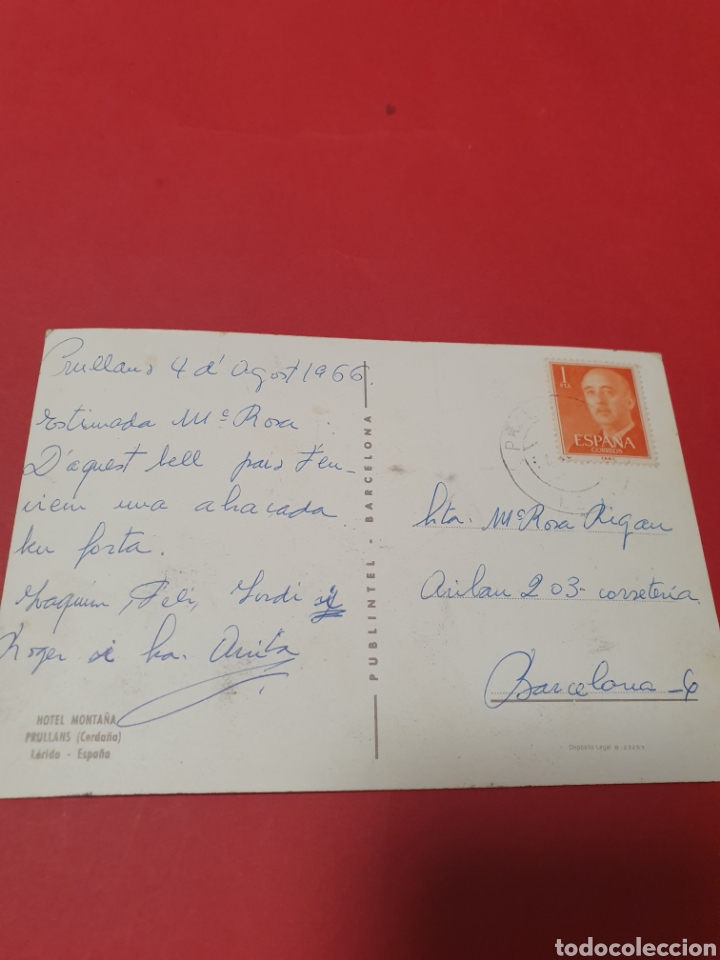 Prullans 4 d'Agost 1966
Estimada Mª Rosa
D'aquest bell pais t'en-
viem una abraçada
ben forta.
Joaquim, Feli, Jordi
Roger i Anita
HOTEL MONTAÑA
PRULLANS (Cerdaña)
Lérida - España
PUBLINTEL - BARCELONA
1
PTA
ESPAÑA
CORREOS
Mª Rosa Rigau
203- corseteria
Barcelona-6
Depósito Legal B.
todocoleccion